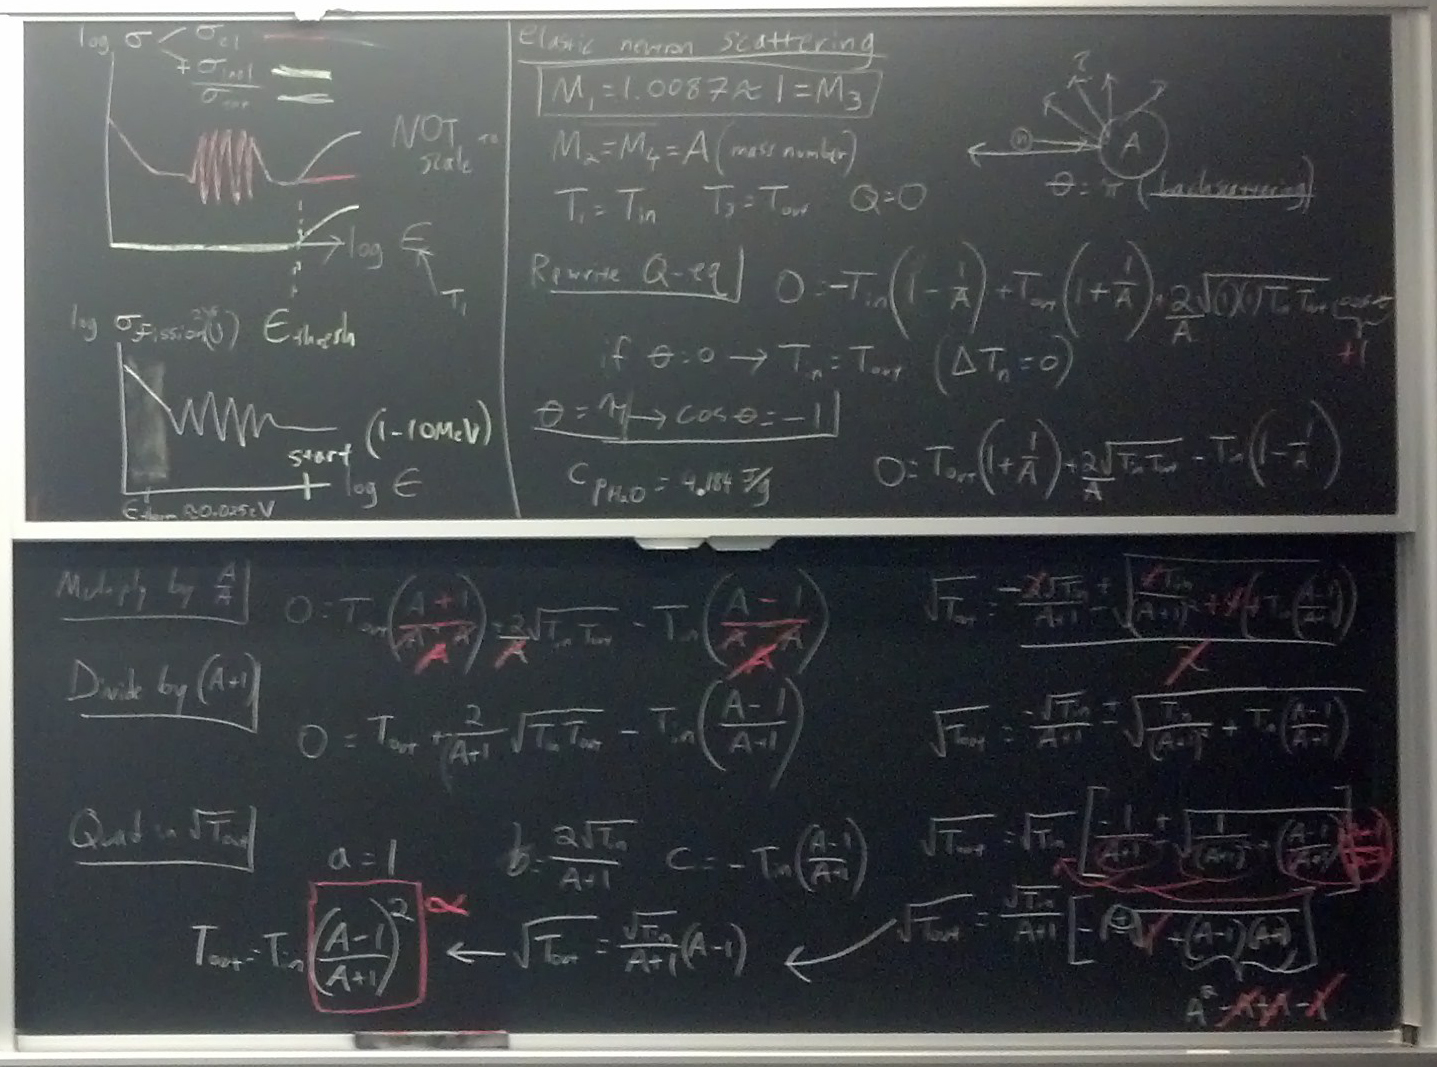 log σ σel
+ σinel
σtot
NOT to scale
log E
T₁
log σFission (²³⁵U) Ethresh
(1-10MeV)
start
log E
Etherm ≈ 0.025eV
elastic neutron scattering
M₁ = 1.0087 ≈ 1 = M₃
M₂ = M₄ = A (mass number)
T₁ = Tin T₃ = Tout Q = 0
n A
θ = π (backscattering)
Rewrite Q-eq 0 = -Tin(1 - 1/A) + Tout(1 + 1/A) - 2/A √((1)(1)Tin Tout) cos θ
+1
if θ = 0 → Tin = Tout (ΔTn = 0)
θ = π → cos θ = -1
0 = Tout(1 + 1/A) + 2/A √(Tin Tout) - Tin(1 - 1/A)
CpH₂O = 4.184 J/g
Multiply by A/A 0 = Tout((A + 1)/A · A) + 2/A √(Tin Tout) - Tin((A - 1)/A · A)
Divide by (A+1)
0 = Tout + 2/(A+1) √(Tin Tout) - Tin((A-1)/(A+1))
Quad in √Tout
a = 1 b = 2√Tin/(A+1) c = -Tin((A-1)/(A+1))
√Tout = (-2√Tin/(A+1) ± √(4Tin/(A+1)² + 4Tin((A-1)/(A+1))))/2
√Tout = -√Tin/(A+1) ± √(Tin/(A+1)² + Tin((A-1)/(A+1)))
√Tout = √Tin [-1/(A+1) ± √(1/(A+1)² + ((A-1)/(A+1)))]
√Tout = √Tin/(A+1) [-1 ⊕ √(1 + (A-1)(A+1))]
A² - A + A - 1
√Tout = √Tin/(A+1) (A-1)
Tout = Tin((A-1)/(A+1))² α